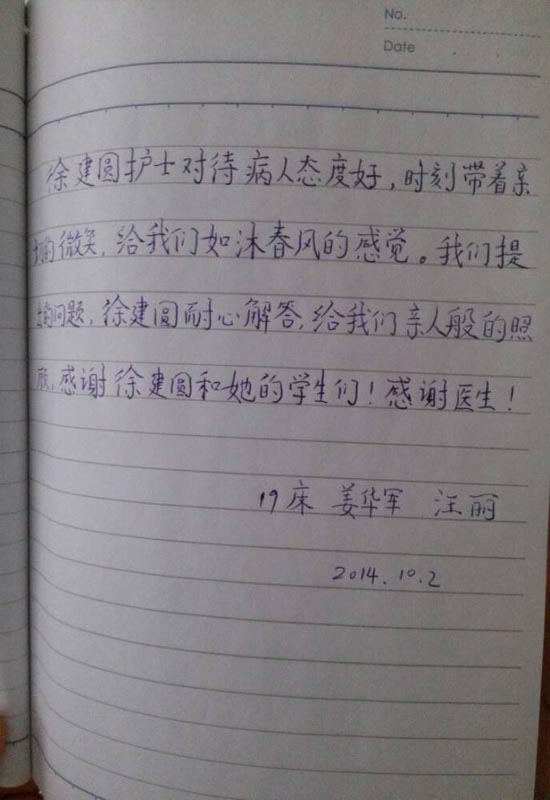 No.
Date . .
徐建圆护士对待病人态度好，时刻带着亲
切的微笑，给我们如沐春风的感觉。我们提
出的问题，徐建圆耐心解答，给我们亲人般的照
顾，感谢徐建圆和她的学生们！感谢医生！
19床 姜华军 汪丽
2014.10.2